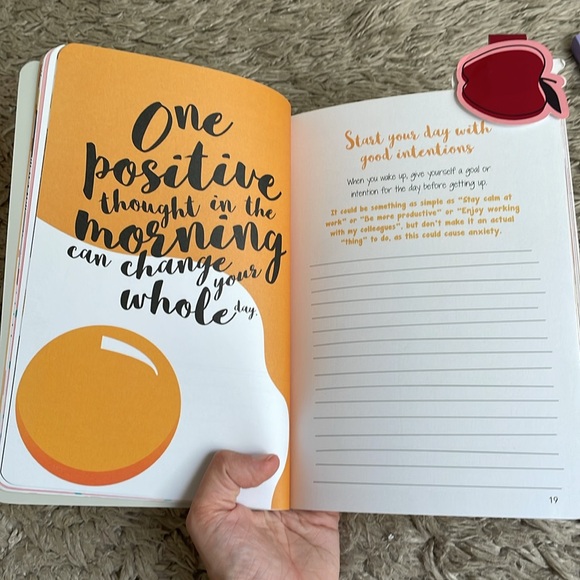 One
positive
thought in the
morning
can change your
whole day.
Start your day with
good intentions
When you wake up, give yourself a goal or
intention for the day before getting up.
It could be something as simple as "Stay calm at
work" or "Be more productive" or "Enjoy working
with my colleagues", but don't make it an actual
"thing" to do, as this could cause anxiety.
19